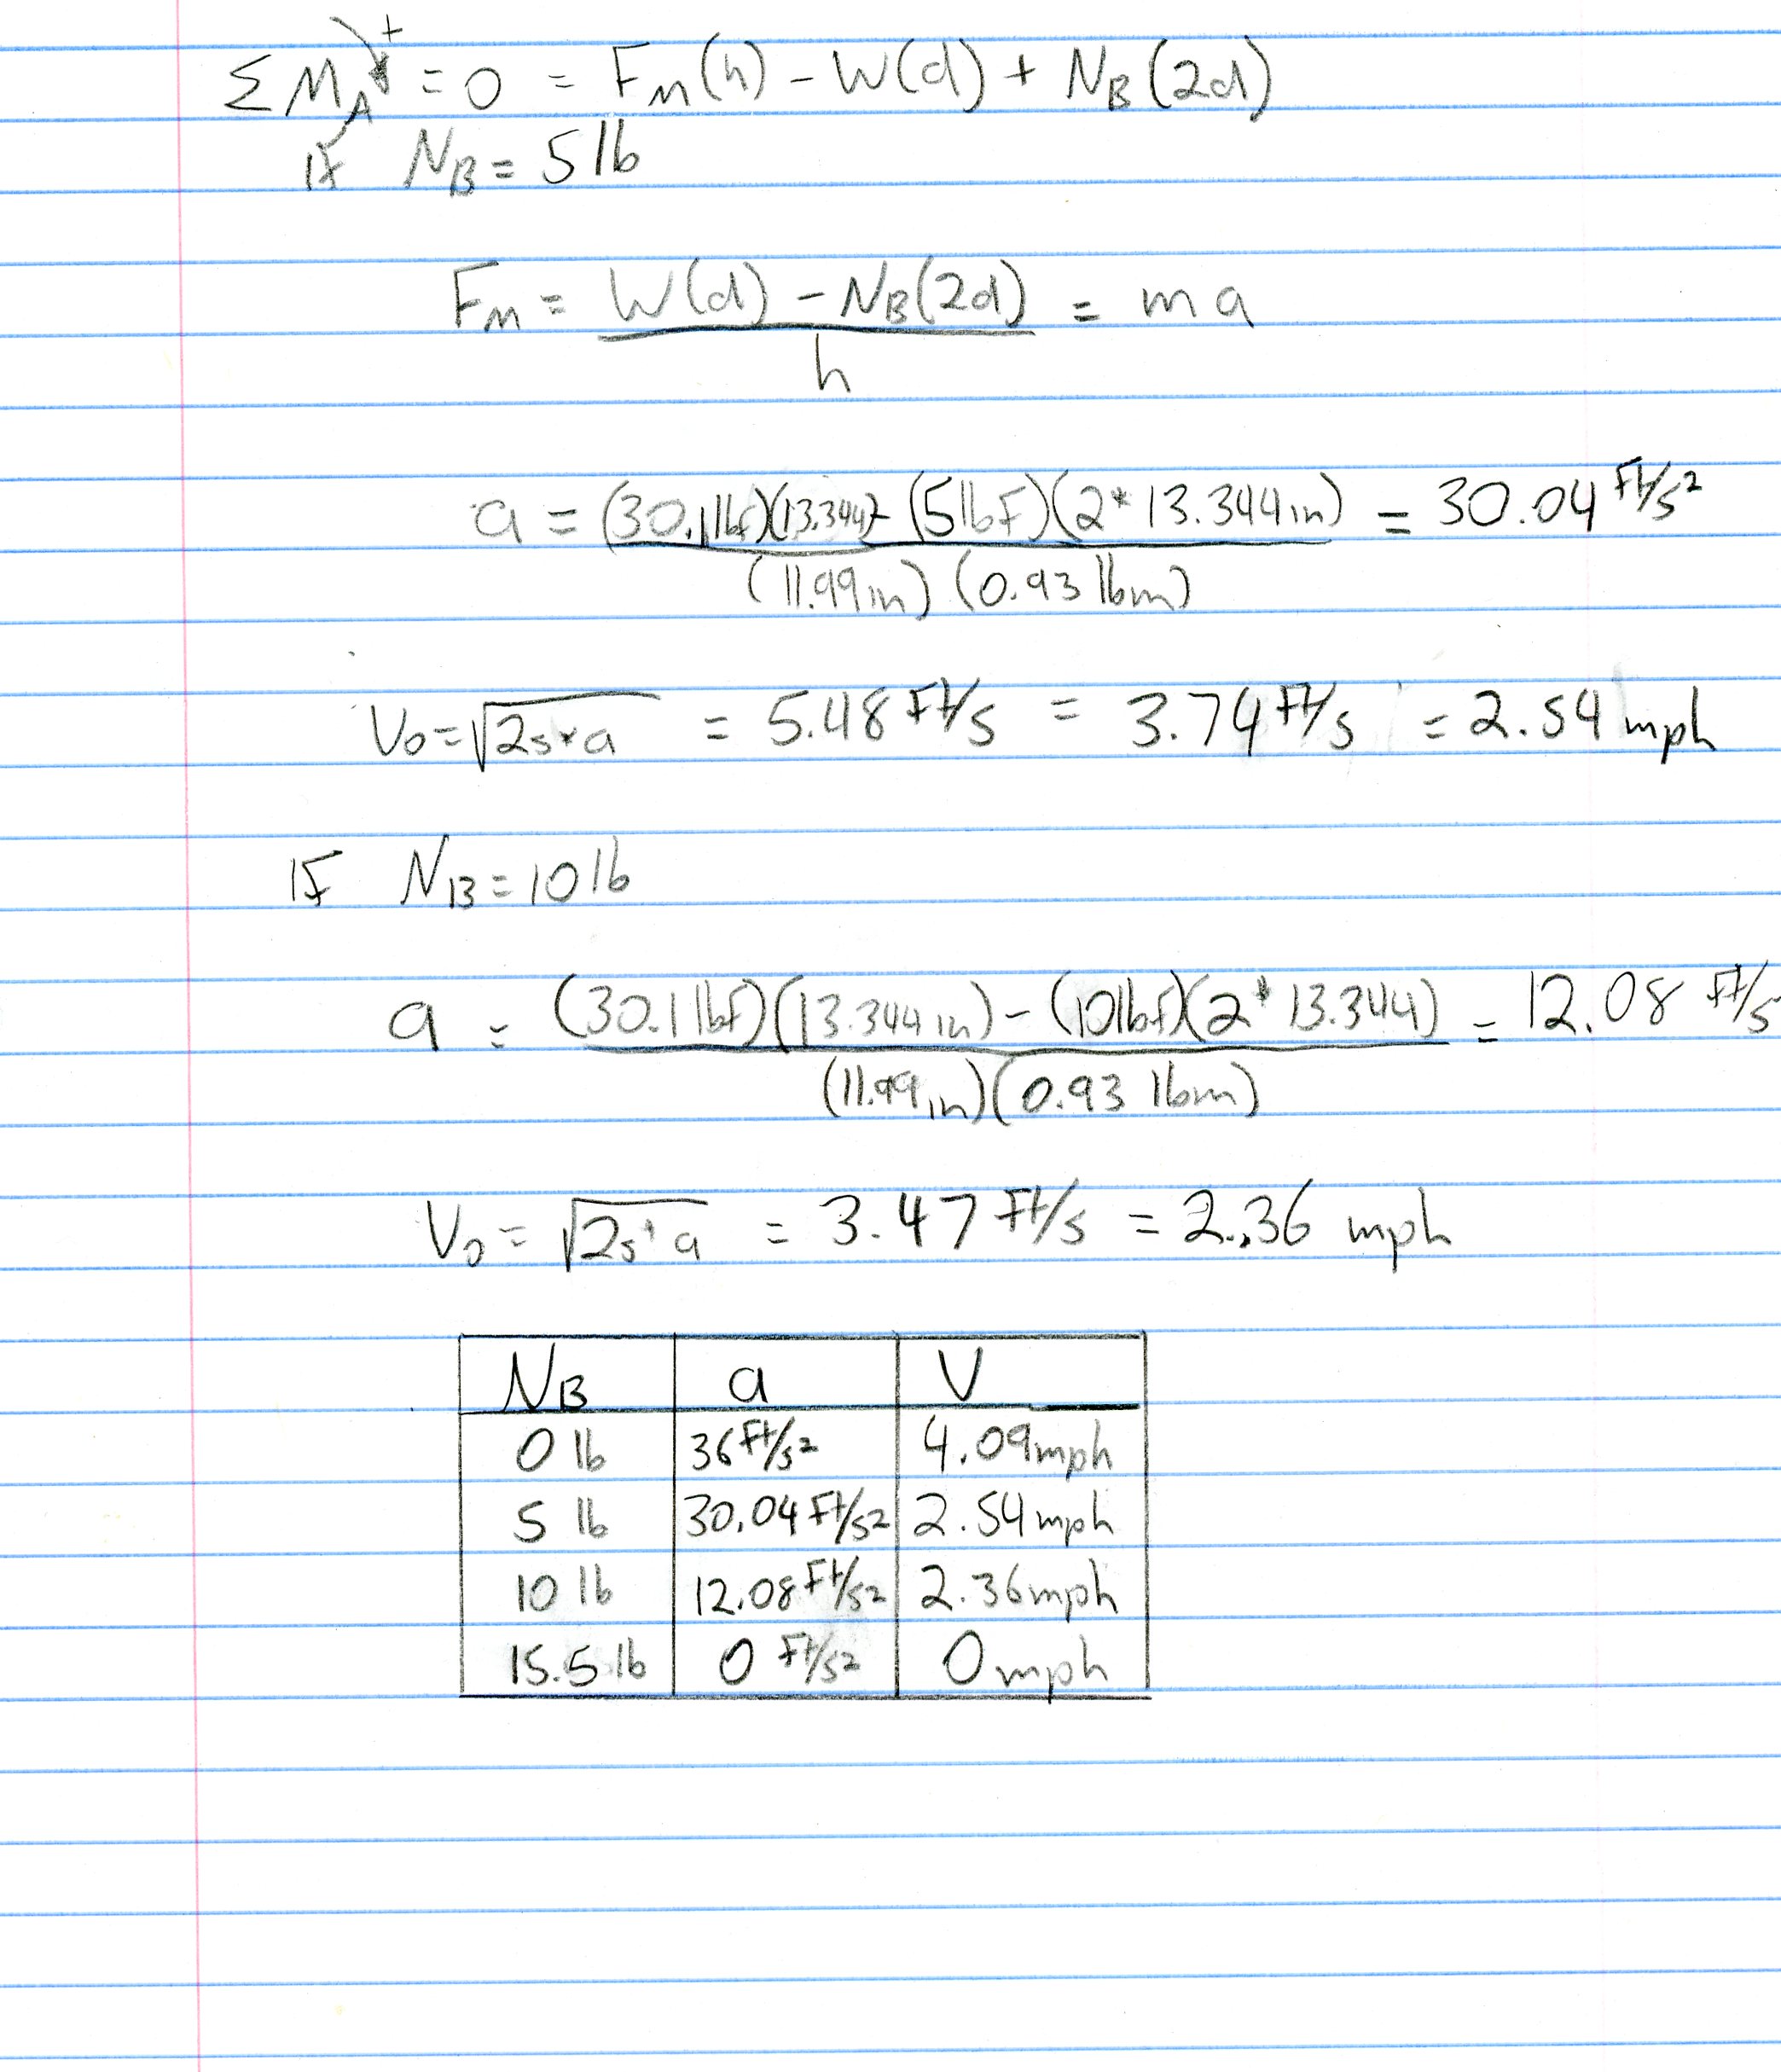 ΣM_A + = 0 = F_M(h) - W(d) + N_B(2d)
IF N_B = 5 lb
F_M = W(d) - N_B(2d) = ma
h
a = (30.1 lbf)(13.344) - (5 lbf)(2*13.344 in) = 30.04 ft/s²
(11.99 in)(0.93 lbm)
V_0 = √2s*a = 5.48 ft/s = 3.74 ft/s = 2.54 mph
IF N_B = 10 lb
a = (30.1 lbf)(13.344 in) - (10 lbf)(2*13.344) = 12.08 ft/s
(11.99 in)(0.93 lbm)
V_0 = √2s*a = 3.47 ft/s = 2.36 mph
N_B a V
0 lb 36 ft/s² 4.09 mph
5 lb 30.04 ft/s² 2.54 mph
10 lb 12.08 ft/s² 2.36 mph
15.5 lb 0 ft/s² 0 mph